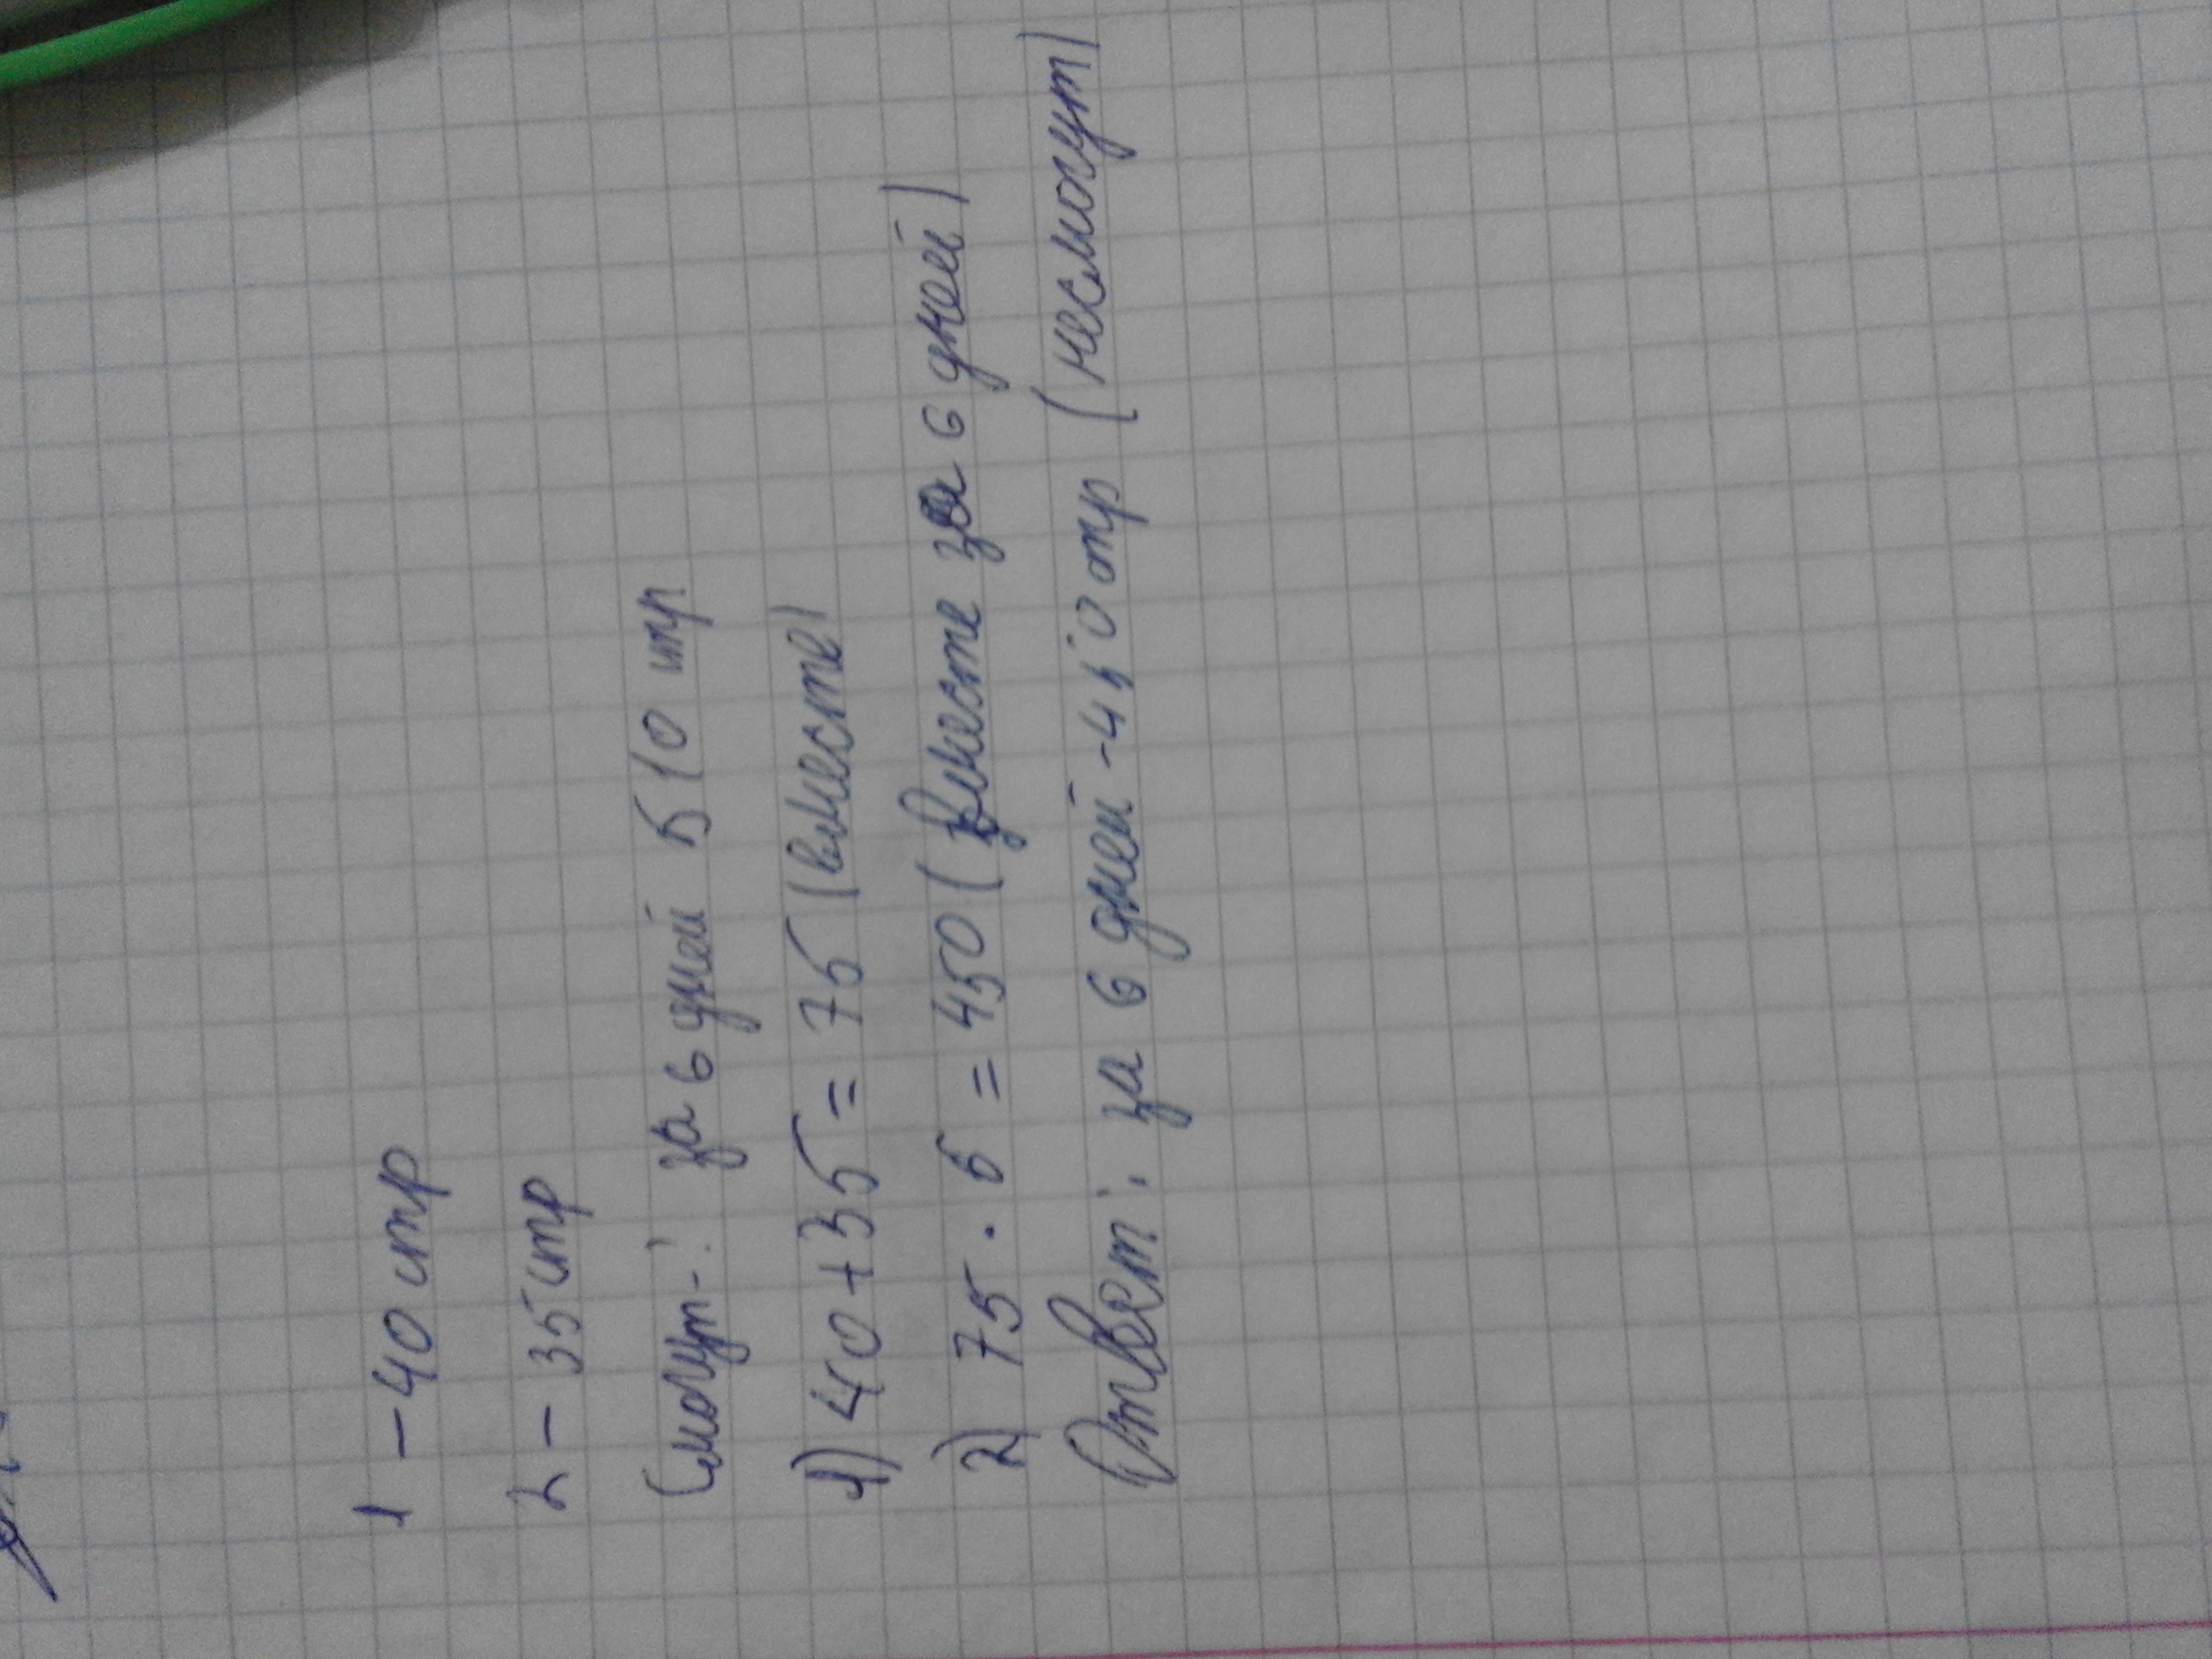 1 - 40 стр
2 - 35 стр
Смогут-? за 6 дней 510 стр.
1) 40 + 35 = 75 (вместе)
2) 75 · 6 = 450 (вместе за 6 дней)
Ответ: за 6 дней - 450 стр (несмогут)